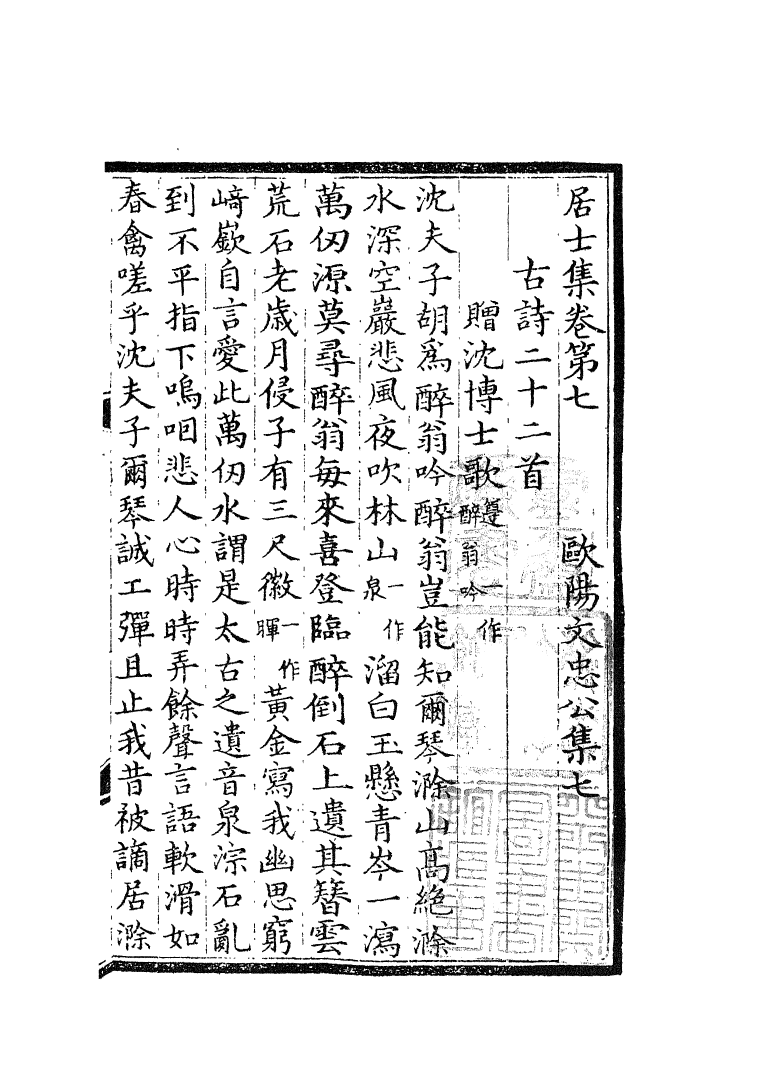 居士集卷第七　歐陽文忠公集七
古詩二十二首
贈沈博士歌遵一作醉翁吟
沈夫子胡爲醉翁吟醉翁豈能知爾琴滁山髙絶滁
水深空巖悲風夜吹林山一作泉溜白玉懸青岑一瀉
萬仞源莫尋醉翁每來喜登臨醉倒石上遺其簪雲
荒石老歲月侵子有三尺徽一作暉黃金寫我幽思窮
﨑嶔自言愛此萬仞水謂是太古之遺音泉淙石亂
到不平指下嗚咽悲人心時時弄餘聲言語軟滑如
春禽嗟乎沈夫子爾琴誠工彈且止我昔被謫居滁